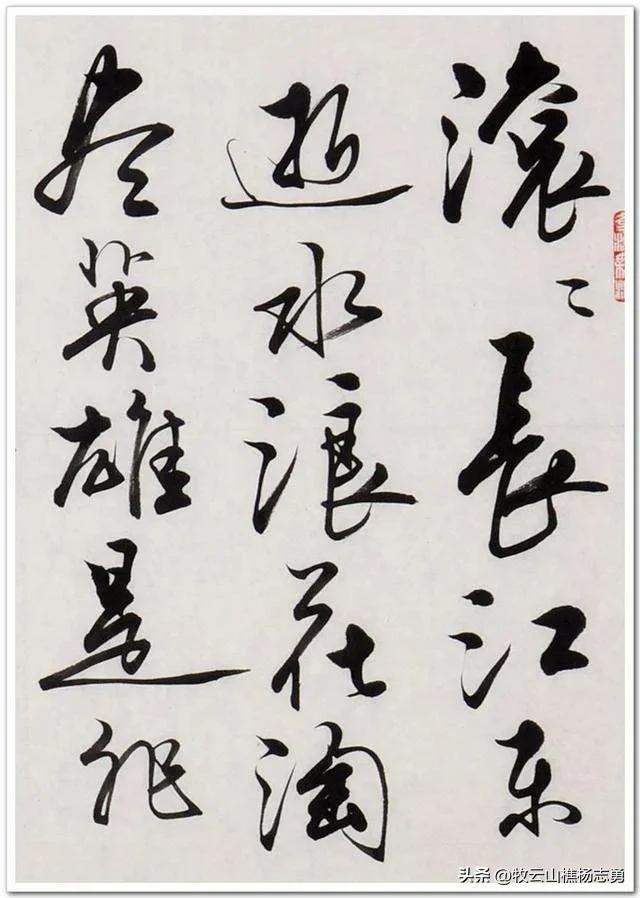 滚〻長江东
逝水浪花淘
尽英雄是非
头条 @牧云山樵杨志勇